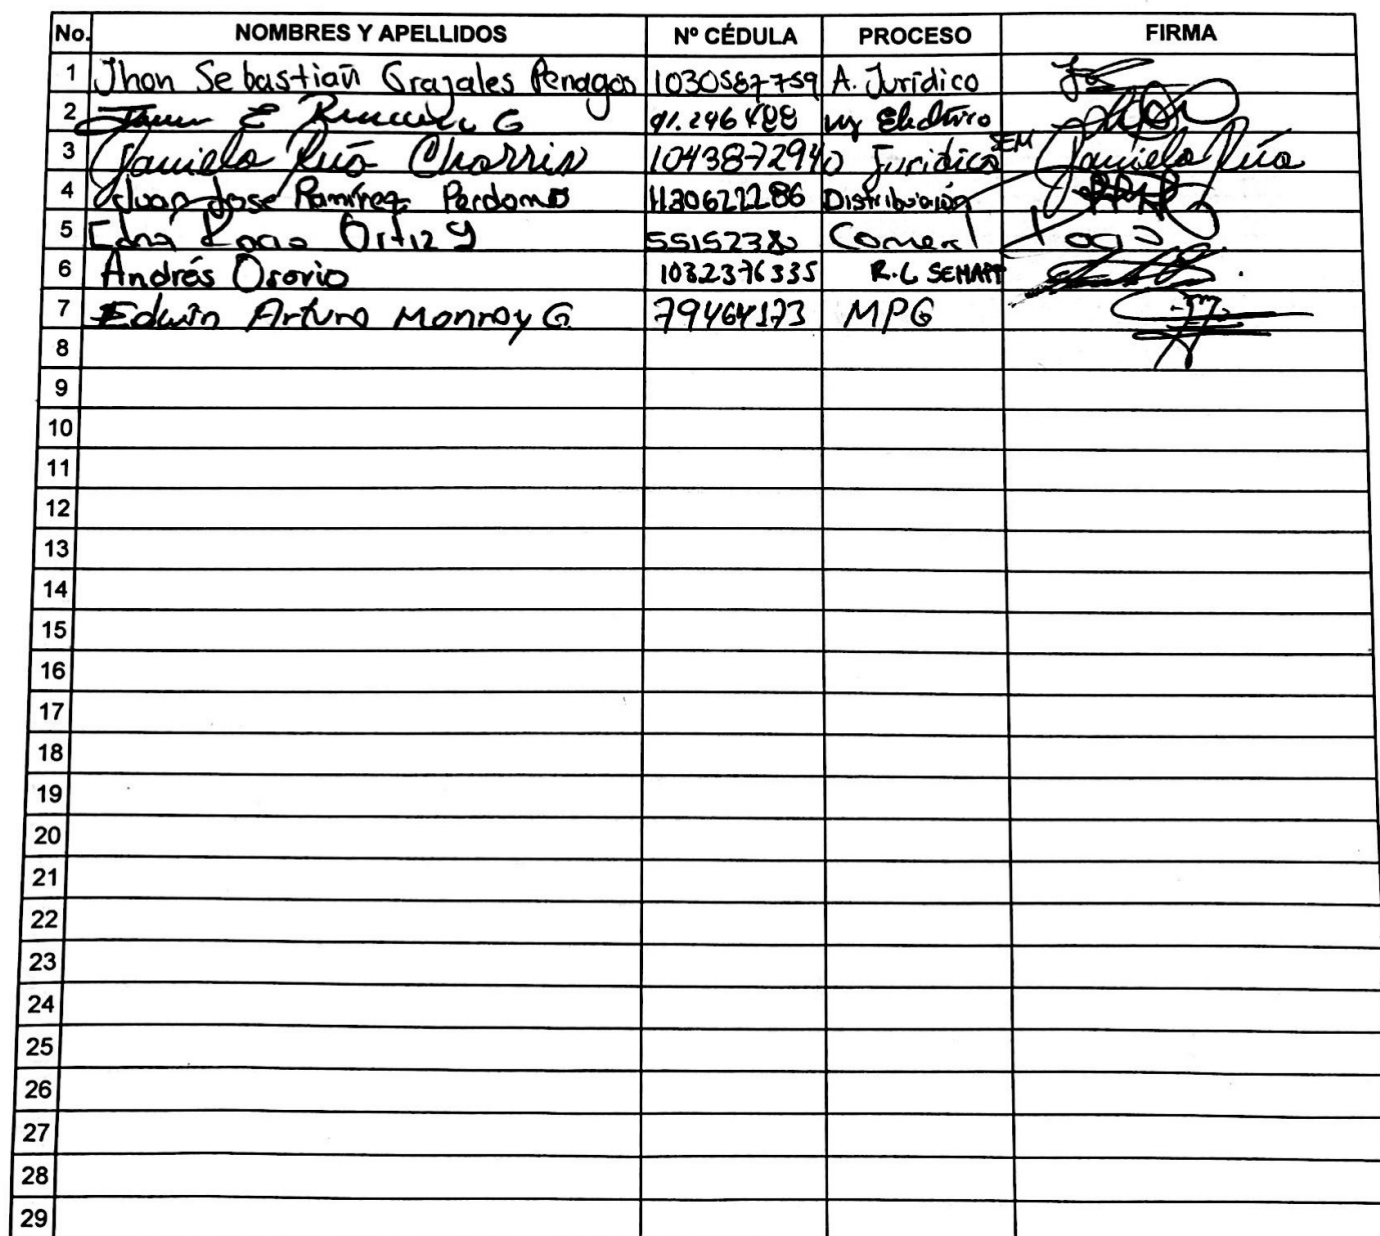 No. NOMBRES Y APELLIDOS Nº CÉDULA PROCESO FIRMA
1 Jhon Sebastian Grajales Penagos 1030587759 A. Jurídico
2 E G 91.246488 Eléctrico
3 Daniela Rúa Charris 1043872940 Jurídica SEM Daniela Rúa
4 Juan Jose Ramírez Perdomo 1130622286 Distribución
5 Edna Rocio Ortiz 55152380 Comercl Rocio
6 Andrés Osorio 1032376335 R.L SEMAPP
7 Edwin Arturo Monroy G. 79464173 MPG
8
9
10
11
12
13
14
15
16
17
18
19
20
21
22
23
24
25
26
27
28
29